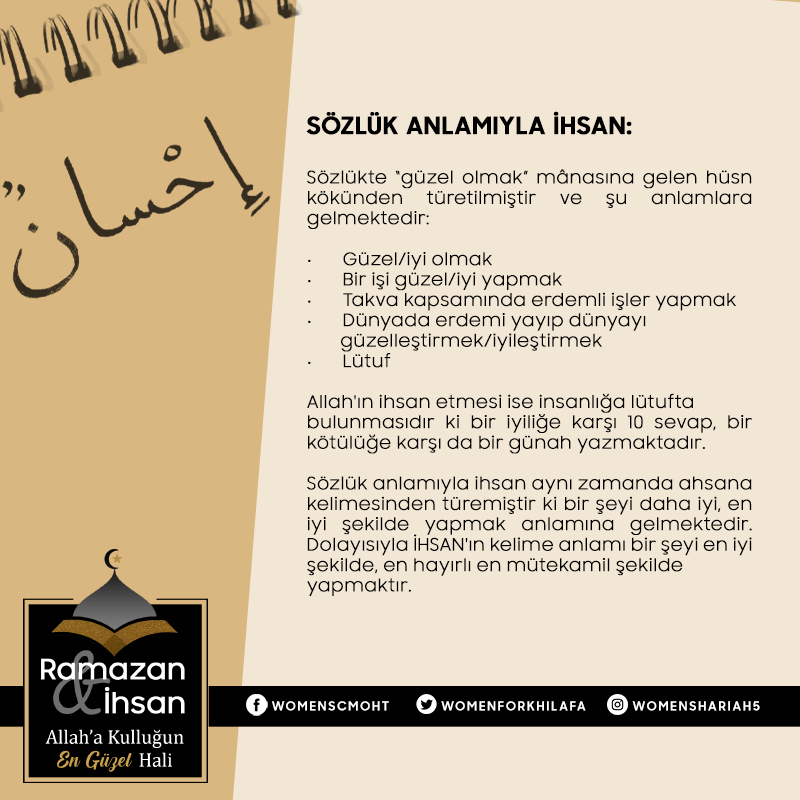 إِحْسان”
SÖZLÜK ANLAMIYLA İHSAN:
Sözlükte “güzel olmak” mânasına gelen hüsn
kökünden türetilmiştir ve şu anlamlara
gelmektedir:
· Güzel/iyi olmak
· Bir işi güzel/iyi yapmak
· Takva kapsamında erdemli işler yapmak
· Dünyada erdemi yayıp dünyayı
güzelleştirmek/iyileştirmek
· Lütuf
Allah'ın ihsan etmesi ise insanlığa lütufta
bulunmasıdır ki bir iyiliğe karşı 10 sevap, bir
kötülüğe karşı da bir günah yazmaktadır.
Sözlük anlamıyla ihsan aynı zamanda ahsana
kelimesinden türemiştir ki bir şeyi daha iyi, en
iyi şekilde yapmak anlamına gelmektedir.
Dolayısıyla İHSAN'ın kelime anlamı bir şeyi en iyi
şekilde, en hayırlı en mütekamil şekilde
yapmaktır.
Ramazan
& İhsan
Allah’a Kulluğun
En Güzel Hali
WOMENSCMOHT WOMENFORKHILAFA WOMENSHARIAH5